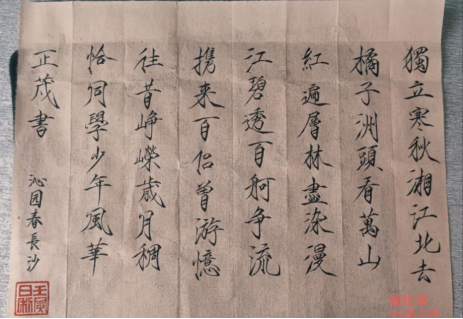 獨立寒秋湘江北去
橘子洲頭看萬山
紅遍層林盡染漫
江碧透百舸争流
携来百侣曾游憶
往昔峥嵘歳月稠
恰同學少年風華
正茂書
沁园春長沙